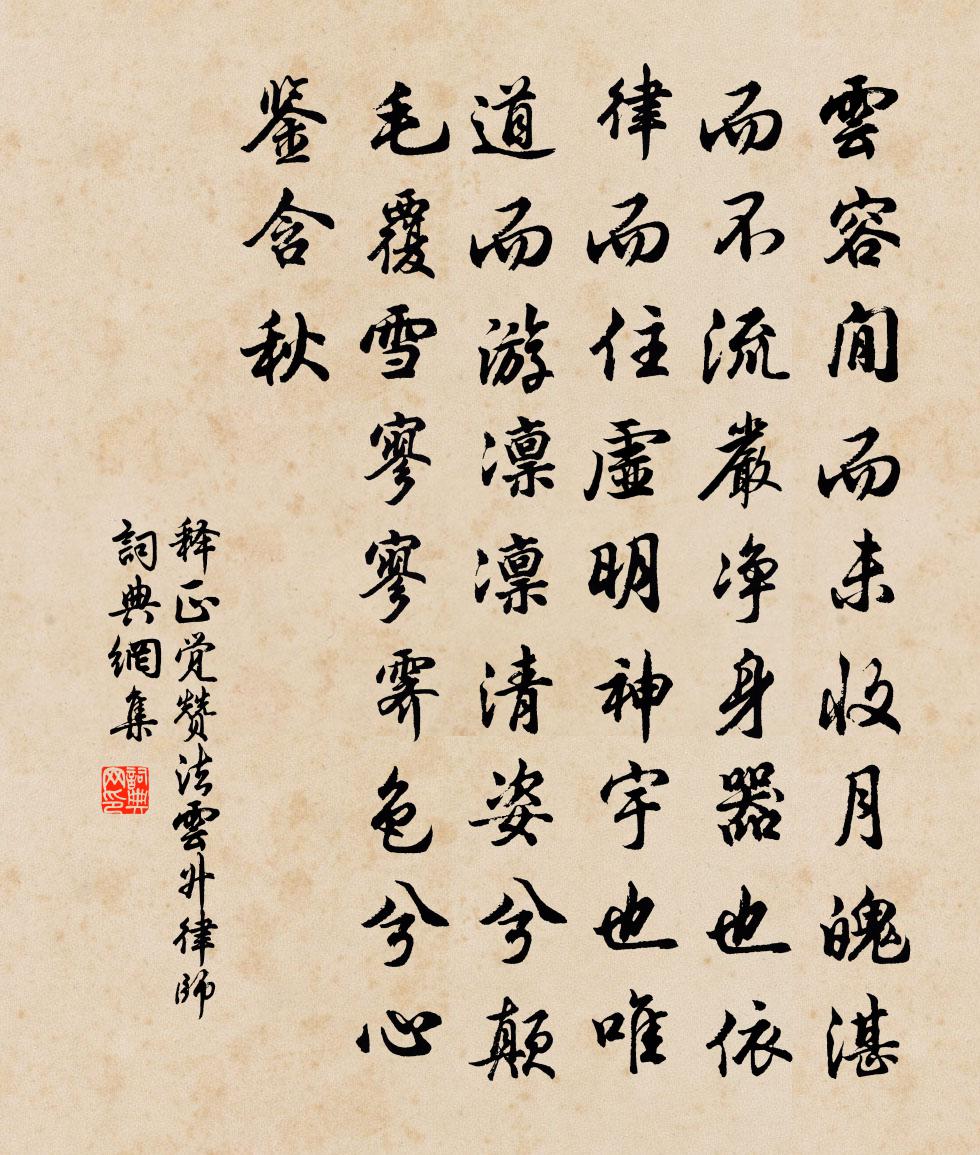 雲容閒而未收月魄湛
而不流嚴净身器也依
律而住虛明神宇也唯
道而游凛凛清姿兮顛
毛覆雪寥寥霽色兮心
鉴含秋
释正覚赞法雲升律師
詞典網集
詞典網印